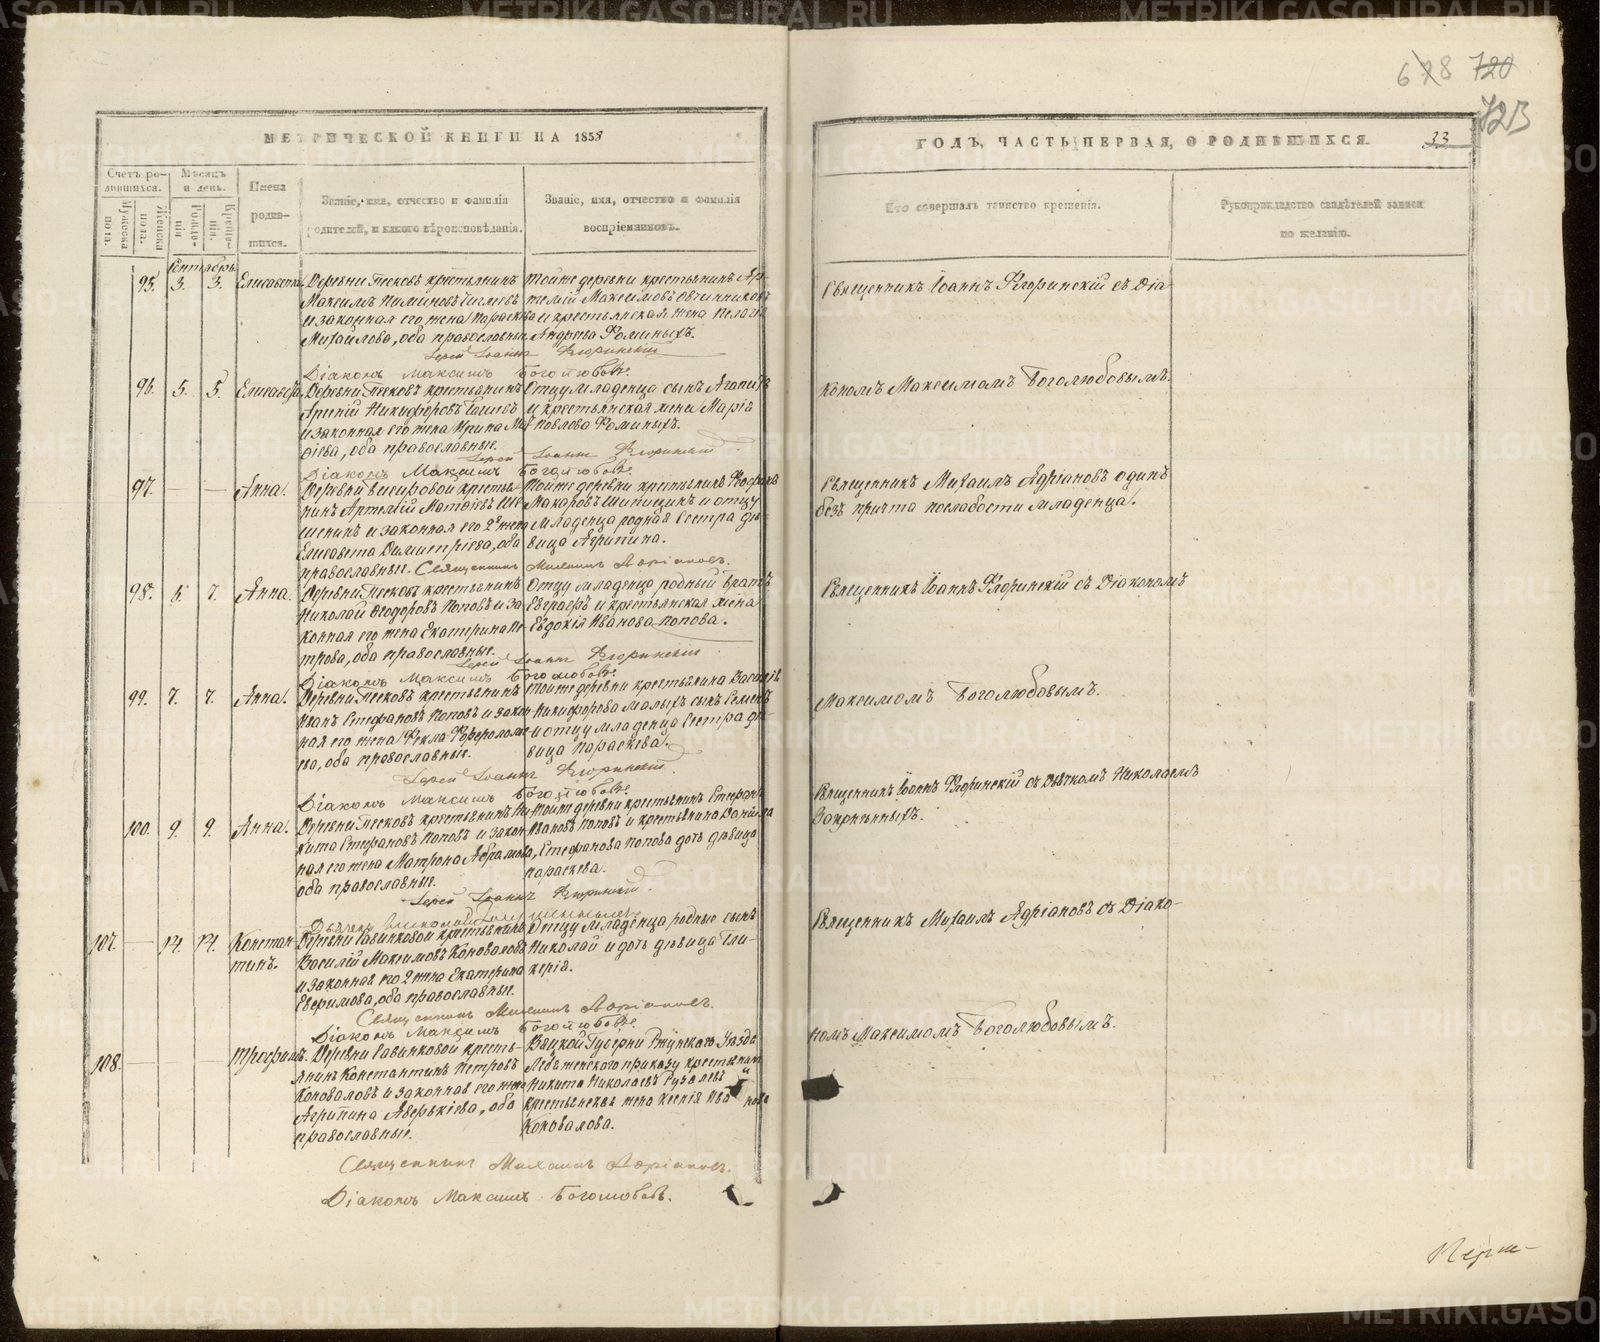 678 720
723
МЕТРИЧЕСКОЙ КНИГИ НА 1858
ГОДЪ, ЧАСТЬ ПЕРВАЯ, О РОДИВШИХСЯ. 33
Счетъ родившихся.
Мѣсяцъ и день.
Имена родившихся.
Званіе, имя, отчество и фамилія родителей, и какого вѣроисповѣданія.
Званіе, имя, отчество и фамилія воспріемниковъ.
Кто совершалъ таинство крещенія.
Рукоприкладство свидѣтелей записи по желанію.
Мужеска пола.
Женска пола.
Рожденія.
Крещенія.
Сентябрь
95. 3. 3. Елисавета
Деревни Песковъ крестьянинъ
Максимъ Пиминовъ
и законная его жена Параскева
Михайлова, оба православные
Тойже деревни крестьянинъ Ар-
темій Максимовъ Овчинниковъ
и крестьянская жена Пелагія
Андреева Фоминыхъ.
Іерей Іоаннъ Флоринскій
Діаконъ Максимъ Боголюбовъ.
Священникъ Іоаннъ Флоринскій съ Діа
96. 5. 5. Елисавета
Деревни Песковъ крестьянинъ
Арсеній Никифоровъ
и законная его жена Ирина
оба православные.
Отцу младенца сынъ Агапитъ
и крестьянская жена Марія
Павлова Фоминыхъ.
Іерей Іоаннъ Флоринскій
Діаконъ Максимъ Боголюбовъ
кономъ Максимомъ Боголюбовымъ.
97. — — Анна.
Артемій Матвѣевъ
и законная его 2я жена
Елисавета Димитріева, оба
православные.
Тойже деревни крестьянинъ
Макаровъ Шипицинъ и отцу
младенца родная сестра дѣ-
вица Агрипина.
Священникъ Михаилъ Адріановъ.
Священникъ Михаилъ Адріановъ одинъ
безъ причта послабости младенца.
98. 5. 7. Анна.
Деревни Песковъ крестьянинъ
Николай Ѳеодоровъ Поповъ и за
конная его жена Екатерина Пе-
трова, оба православные.
Отцу младенца родный братъ
Евграфъ и крестьянская жена
Евдокія Иванова Попова.
Іерей Іоаннъ Флоринскій
Діаконъ Максимъ Боголюбовъ
Священникъ Іоаннъ Флоринскій съ Діакономъ
99. 7. 7. Анна.
Деревни Песковъ крестьянинъ
Иванъ Стефановъ Поповъ и закон
ная его жена Фекла
оба православные.
Тойже деревни крестьянина Василія
Никифорова Малыхъ сынъ Семенъ
и отцу младенца сестра дѣ-
вица Параскева.
Іерей Іоаннъ Флоринскій.
Діаконъ Максимъ Боголюбовъ.
Максимомъ Боголюбовымъ.
100. 9. 9. Анна.
Деревни Песковъ крестьянинъ Ни-
кита Стефановъ Поповъ и закон
ная его жена Матрона Абрамова,
оба православные.
Тойже деревни крестьянинъ Стефанъ
Ивановъ Поповъ и крестьянина Даніила
Стефанова Попова дочь дѣвица
Параскева.
Іерей Іоаннъ Флоринскій.
Священникъ Іоаннъ Флоринскій съ Дьячкомъ Николаемъ
107. — 14. 14. Констан-
тинъ.
Деревни Савинковой крестьянинъ
Василій Максимовъ Коноваловъ
и законная его 2 жена Екатерина
Евфимова, оба православные.
Отцу младенца родные сынъ
Николай и дочь дѣвица Гли-
керія.
Священникъ Михаилъ Адріановъ.
Діаконъ Максимъ Боголюбовъ.
Священникъ Михаилъ Адріановъ съ Діако-
108. — Трофимъ.
Деревни Савинковой кресть-
янинъ Константинъ Петровъ
Коноваловъ и законная его жена
Агрипина Аверкіева, оба
православные.
Вятской Губерніи Уѣзда
приказу крестьянинъ
Никита Николаевъ и
жена Ксенія Иванова
Коновалова.
Священникъ Михаилъ Адріановъ.
Діаконъ Максимъ Боголюбовъ.
номъ Максимомъ Боголюбовымъ.
METRIKI.GASO-URAL.RU